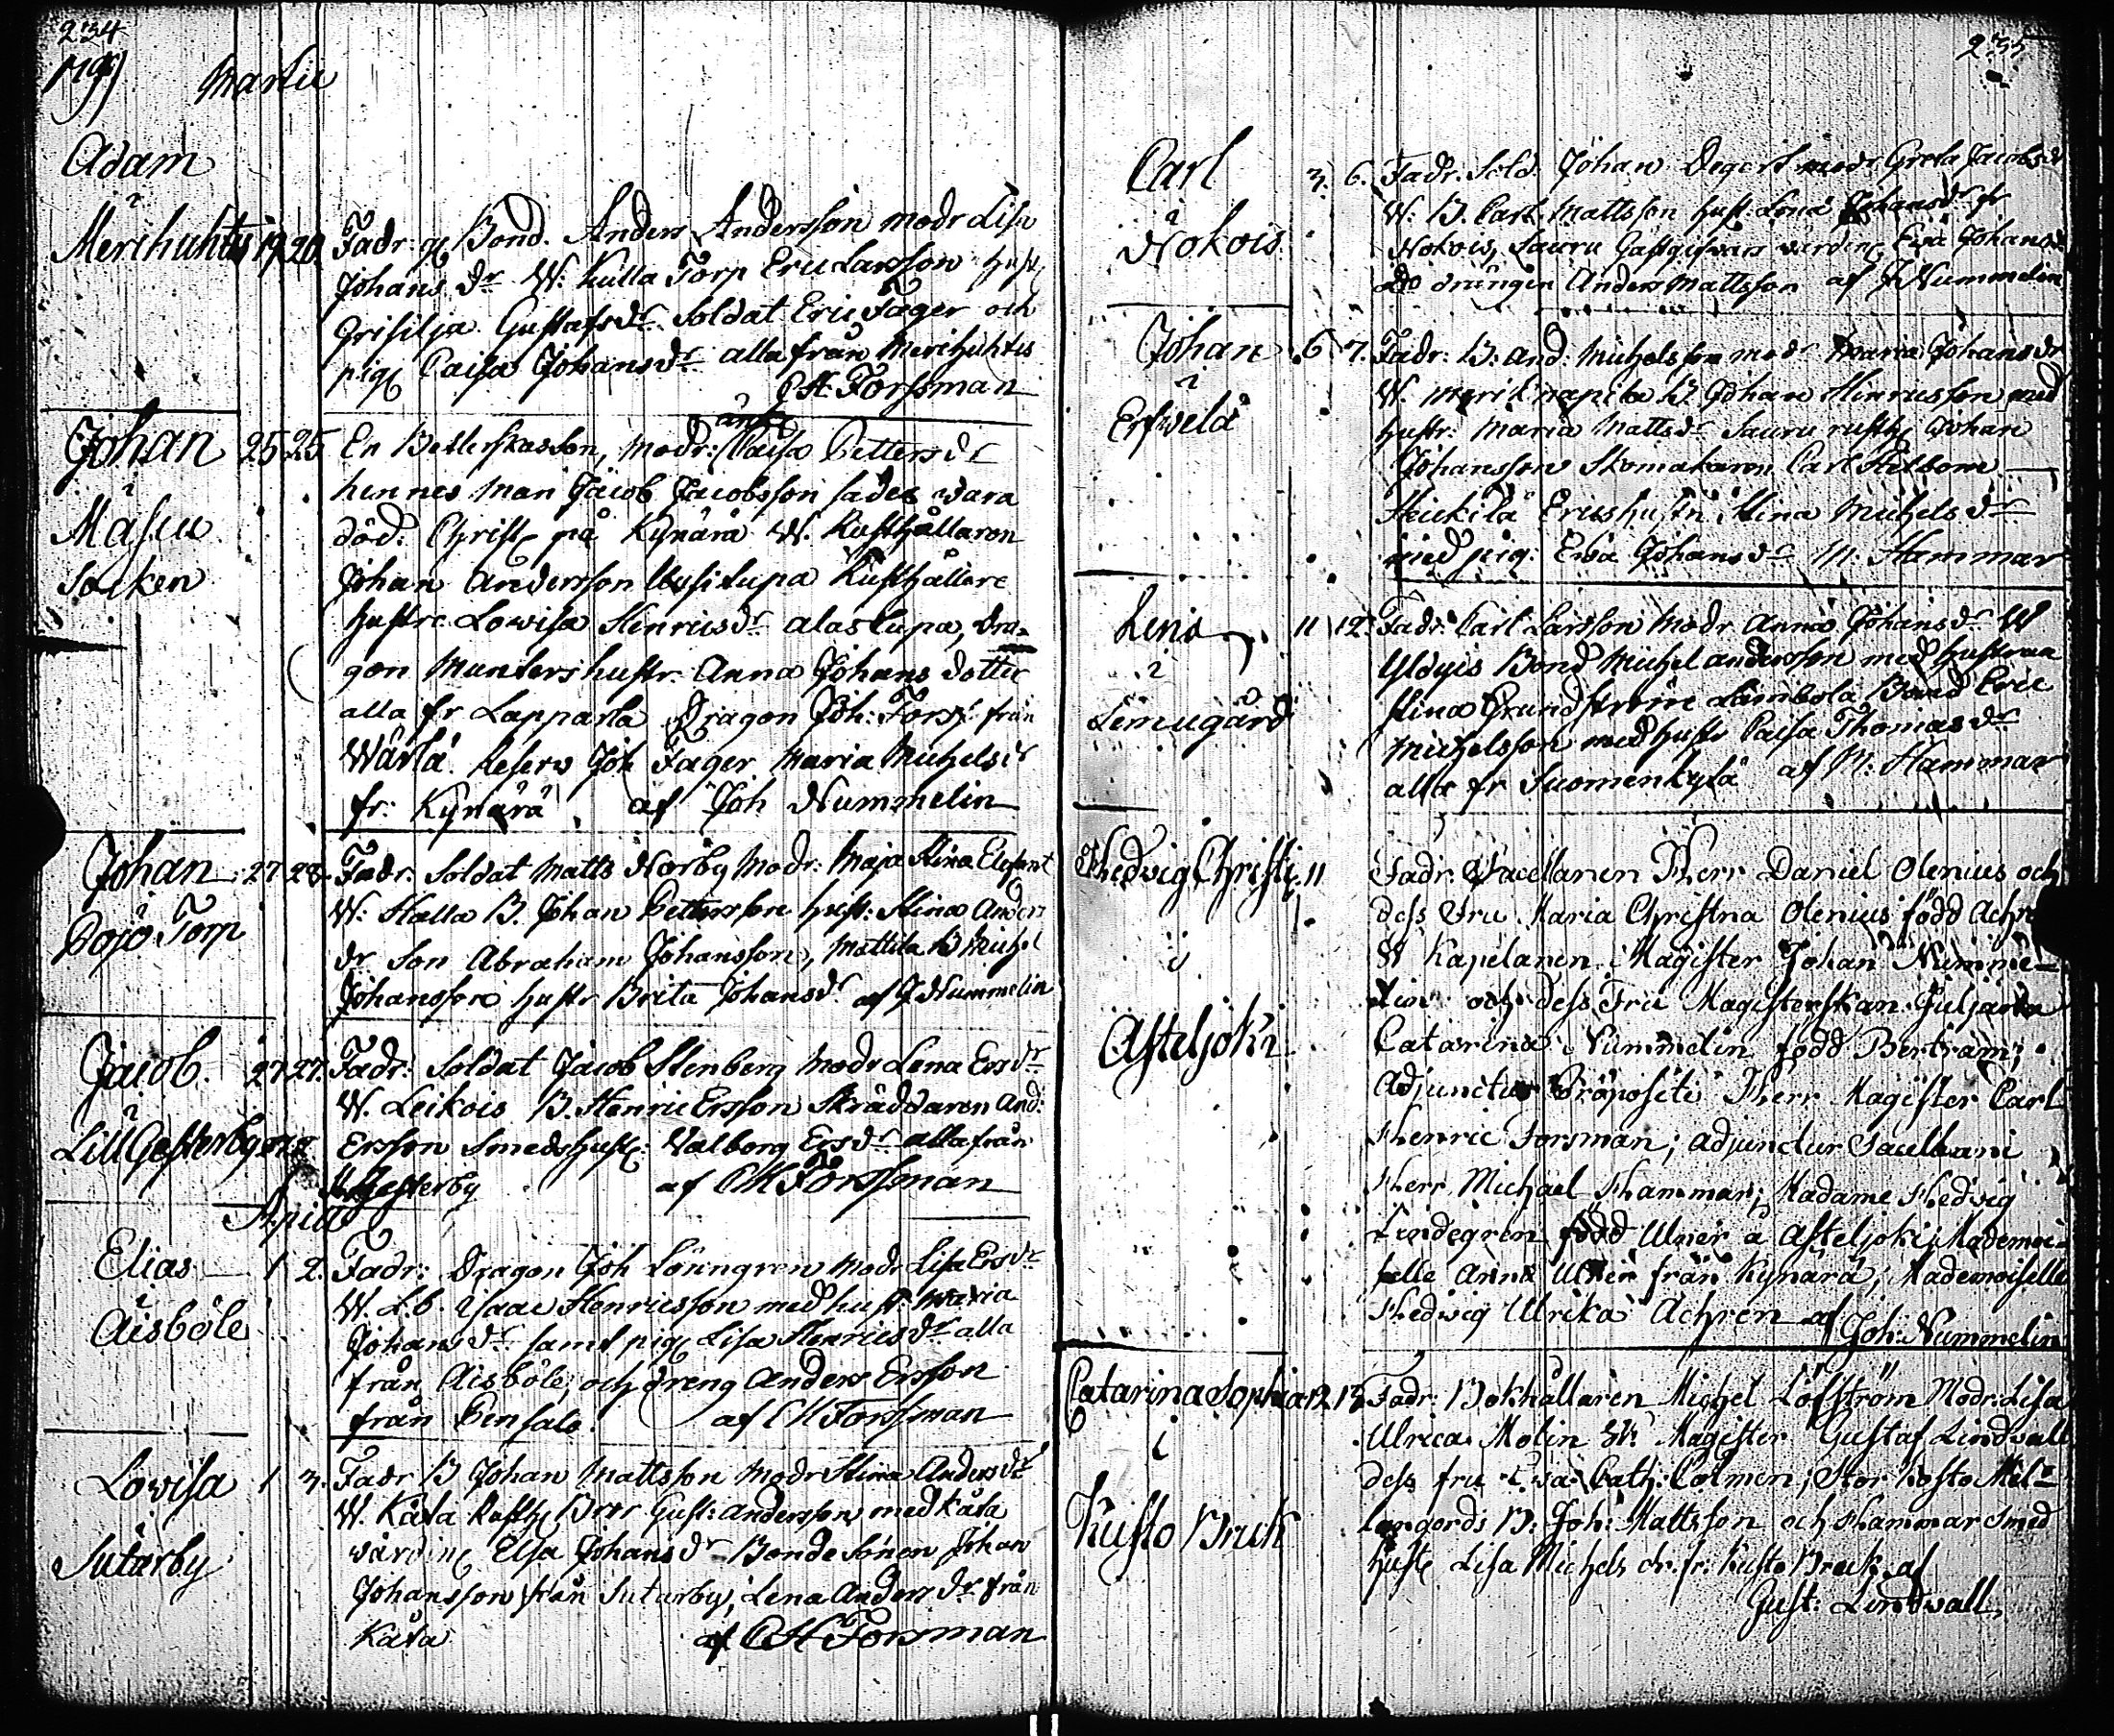 234
1799 Martii
Adam
i
Merihuhtis 19 20. Fadr: Bond. Anders Andersson modr Lisa
Johans dr W: Kulla Torp Eric Larsson hust
Grisilja Gustafsdr Soldat Eric Fager och
pig Caisa Johansdr alla från Merihuhtis
CH Forssman
Johan 25 25. En Betlerskas son, modr: änk Caisa Petters dr
i
hennes man Jacob Jacobsson sades wara
Masku
död. Christ på Kynärä W. Rusthållaren
Socken
Johan Andersson Uusitupa Rusthållare
hustru Lowisa Henricsdr Alastupa, Dra-
gon Munters hustr: Anna Johans dotter
alla fr Lapparla Dragon Joh: Forss från
Wärlä. Reserv Joh Fager Maria Michelsdr
fr: Kynärä af Joh Nummelin
Johan 27 28. Fadr: Soldat Matts Norby Modr: Maja Stina Elefant
i
W: Halla B. Johan Pettersson hust: Stina Anders
Pojo Torp
dr Son Abraham Johansson, Mattila B Michel
Johansson hustr Brita Johansdr af J Nummelin
Jacob. 27 27. Fadr: Soldat Jacob Stenberg Modr Lena Ersdr
i
W. Leikois B. Henric Ersson Skräddaren And:
Lill Gesterby
Ersson Smeds hust: Valborg Ersdr alla från
Gesterby af CH Forssman
April
Elias 1 2. Fadr: Dragon Joh Lönngren modr Lisa Ersdr
i
W. L.b. Isaac Henricsson med hust: Maria
Aisböle
Johansdr samt pig Lisa Henricsdr alla
från Aisböle, och dreng Anders Ersson
från Pensalo. af CH Forssman
Lowisa 1 3. Fadr B Johan Mattsson Modr Stina Andersdr
i
W. Kåta Rusth Gust: Andersson med Kåta
Sutarby
wärdin Elsa Johansdr Bonde Sonen Johan
Johansson från Sutarby, Lena Anders dr från
Kåta af CH Forsman
235
Carl 3. 6. Fadr. Sold. Johan Degert modr Greta Jacobsdr
i
W: B. Carl Mattsson hust: Lena Johansdr fr
Nokois
Nokois, Sauru Gästgifvars wärdin Ewa Johansdr
do drängen Anders Mattsson af J Nummelin
Johan 6 7. Fadr: B: And: Michelsson modr Maria Johansdr
i
W. B Johan Hinricsson med
Erfwelä
hustr: Maria Mattsdr Sauru rusth Johan
Johansson Skomakaren Carl
Heickilä Erics hust Stina Michelsdr
med pig: Ewa Johansdr M: Hammar
Lena 11 12. Fadr: Carl Larsson Modr Anna Johansdr W
i
Yldyis Bond Michel Andersson med hustrun
Lemugård
Stina Grundström Lambola Bond Eric
Michelsson med hustr Caisa Thomasdr
alla fr Suomenkylä af M: Hammar
Hedvig Christi: 11 Fadr: Sacellanen Herr Daniel Olenius och
dess Fru Maria Christina Olenius född Achren
i
W Kapelanen Magister Johan Numme-
lin och dess Fru Magisterskan Juliana
Asteljoki
Catarina Nummelin född Bertram;
Adjunctus Præpositi Herr Magister Carl
Henric Forsman; adjunctus Sacellani
Herr Michael Hammar; Madame Hedvig
Lindegren född Ulner a Asteljoki; Mademoi-
selle Anna Ulner från Kynärä; Mademoiselle
Hedwig Ulrika Achren af Joh: Nummelin
Catarina Sophia 12. 13. Fadr: Bokhållaren Michel Löfström Modr: Lisa
i
Ulrica Molin W: Magister Gustaf Lindwall
dess fru Ewa Cath: Polmen; Stor Kosto Mel-
Kusto Bruk
langords B: Joh: Mattsson och Hammar Smed
hust Lisa Michels dr. fr: Kusto Bruk af
Gust: Lindwall